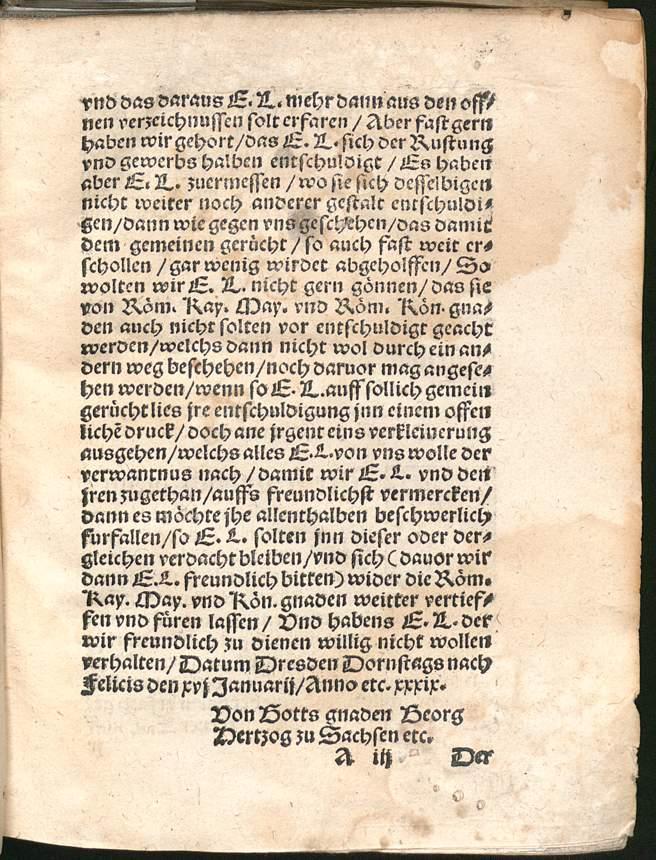 vnd das daraus E. L. mehr dann aus den off⸗
nen verzeichnussen solt erfaren / Aber fast gern
haben wir gehort/das E. L. sich der Rustung
vnd gewerbs halben entschuldigt / Es haben
aber E. L. zuermessen /wo sie sich desselbigen
nicht weiter noch anderer gestalt entschuldi⸗
gen/dann wie gegen vns geschehen/das damit
dem gemeinen gerücht / so auch fast weit er⸗
schollen / gar wenig wirdet abgeholffen/ So
wolten wir E. L. nicht gern gönnen/das sie
von Röm. Kay. May. vnd Röm. Kön. gna⸗
den auch nicht solten vor entschuldigt geacht
werden/welchs dann nicht wol durch ein an⸗
dern weg beschehen/noch daruor mag angese⸗
hen werden/wenn so E. L. auff sollich gemein
gerücht lies jre entschuldigung jnn einem offen
lichē druck/ doch ane jrgent eins verkleinerung
ausgehen/welchs alles E.L.von vns wolle der
verwantnus nach /damit wir E. L. vnd den
jren zugethan/auffs freundlichst vermercken/
dann es möchte jhe allenthalben beschwerlich
furfallen/so E. L. solten jnn dieser oder der⸗
gleichen verdacht bleiben/vnd sich (dauor wir
dann E.L. freundlich bitten) wider die Röm.
Kay. May. vnd Kön. gnaden weitter vertief⸗
fen vnd füren lassen/ Vnd habens E. L. der
wir freundlich zu dienen willig nicht wollen
verhalten/ Datum Dresden Dornstags nach
Felicis den xvj Januarij/Anno etc. xxxix.
Von Gotts gnaden Georg
Hertzog zu Sachsen etc.
A iij Der